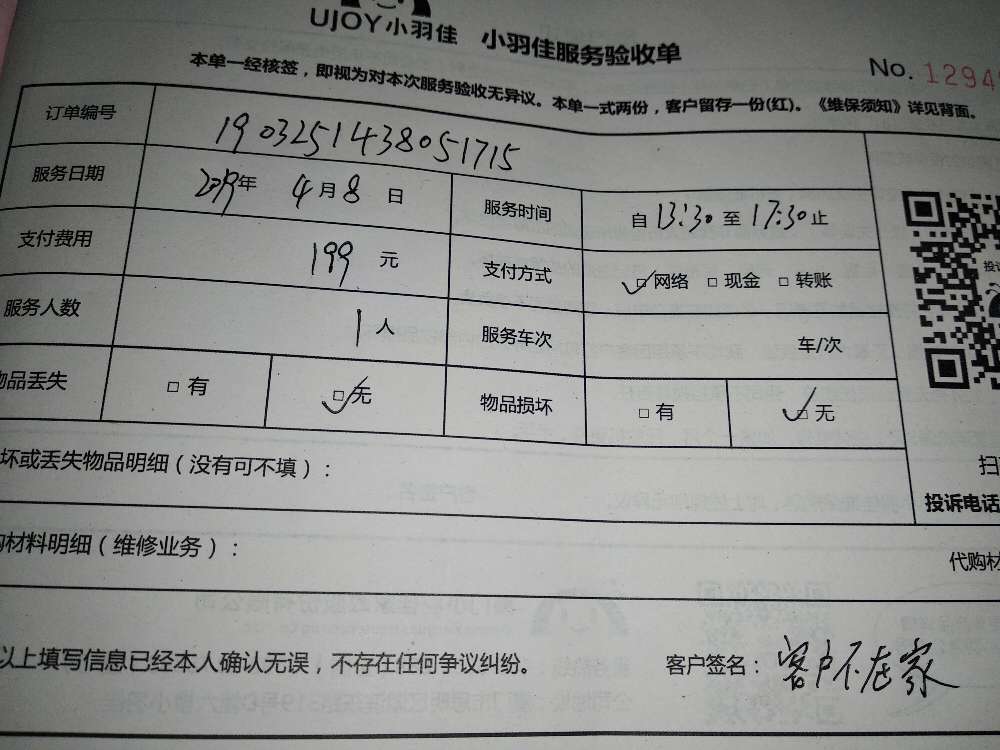 UJOY小羽佳 小羽佳服务验收单
No. 1294
本单一经核签，即视为对本次服务验收无异议。本单一式两份，客户留存一份(红)。《维保须知》详见背面。
订单编号 1903251438051715
服务日期 2019年 4月8日 服务时间 自13:30至17:30止
支付费用 199元 支付方式 ☑网络 □现金 □转账
服务人数 1人 服务车次 车/次
物品丢失 □有 ☑无 物品损坏 □有 ☑无
坏或丢失物品明细（没有可不填）：
扫
投诉电话
购材料明细（维修业务）：
代购材
以上填写信息已经本人确认无误，不存在任何争议纠纷。 客户签名：客户不在家